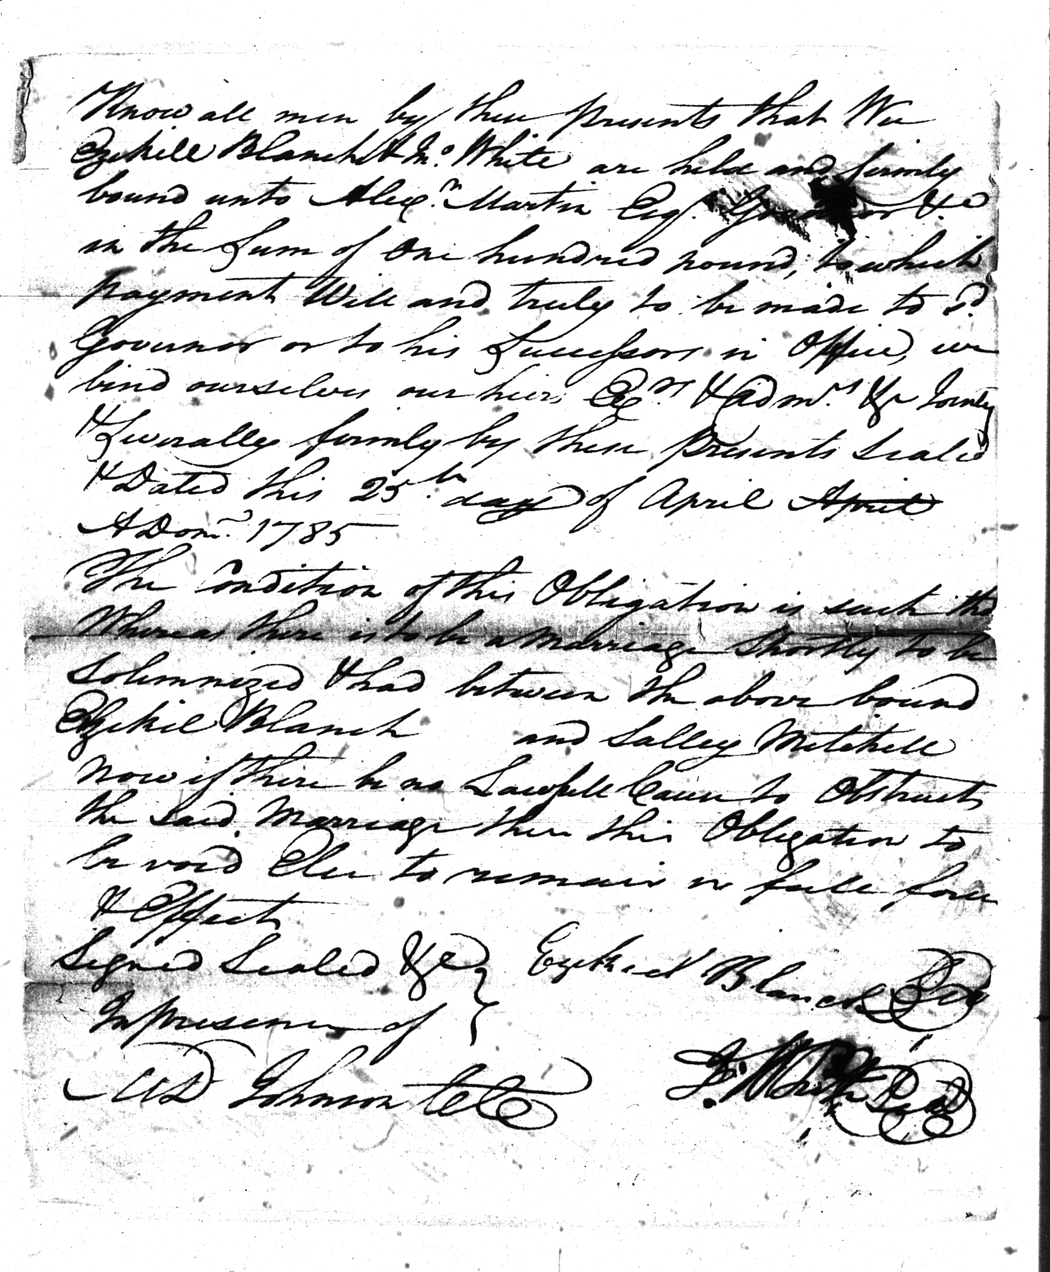 Know all men by these presents that We
Ezekill Blanch & Jno. White are held and firmly
bound unto Alexr. Martin Esqr. Governor &c
in the Sum of One hundred pound, to which
payment Will and truly to be made to sd.
Governor or to his Successors in Office, we
bind ourselves our heirs Exrs. & Admrs. &c Jointly
& Severally firmly by these presents Sealed
& Dated this 25th day of April April
A Dom. 1785
The Condition of this Obligation is such tht
Whereas there is to be a Marriage Shortly to be
Solemnized & had between the above bound
Ezekiel Blanch and Salley Mitchell
Now if there be no Lawfull Cause to Obstruct
the said Marriage then this Obligation to
be void Else to remain in full force
& Effect
Signed Sealed &c
In presence of
Ezekiel Blanch Seal
Jno. White Seal
AD Johnson CC